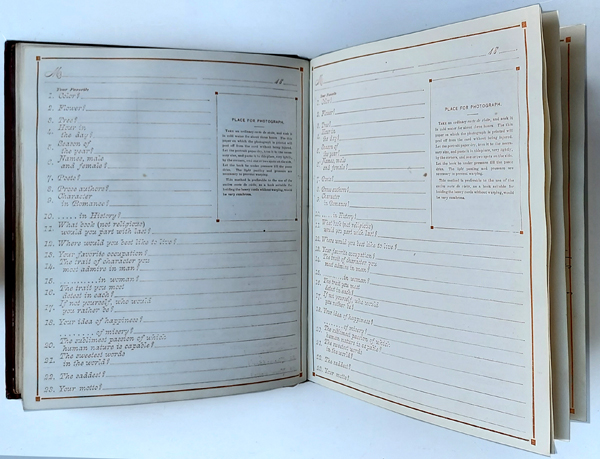 M
18
Your Favorite
1. Color?
2. Flower?
3. Tree?
4. Hour in
the day?
5. Season of
the year?
6. Names, male
and female?
7. Poets?
8. Prose authors?
9. Character
in Romance?
10. ...... in History?
11. What book (not religious)
would you part with last?
12. Where would you best like to live?
13. Your favorite occupation?
14. The trait of character you
most admire in man?
15. ........... in woman?
16. The trait you most
detest in each?
17. If not yourself, who would
you rather be?
18. Your idea of happiness?
......... of misery?
20. The sublimest passion of which
human nature is capable?
21. The sweetest words
in the world?
22. The saddest?
23. Your motto?
PLACE FOR PHOTOGRAPH.
M
18
Your Favorite
1. Color?
2. Flower?
3. Tree?
4. Hour in
the day?
5. Season of
the year?
6. Names, male
and female?
7. Poets?
8. Prose authors?
9. Character
in Romance?
10. ...... in History?
11. What book (not religious)
would you part with last?
12. Where would you best like to live?
13. Your favorite occupation?
14. The trait of character you
most admire in man?
15. ........... in woman?
16. The trait you most
detest in each?
17. If not yourself, who would
you rather be?
18. Your idea of happiness?
......... of misery?
20. The sublimest passion of which
human nature is capable?
21. The sweetest words
in the world?
22. The saddest?
23. Your motto?
PLACE FOR PHOTOGRAPH.